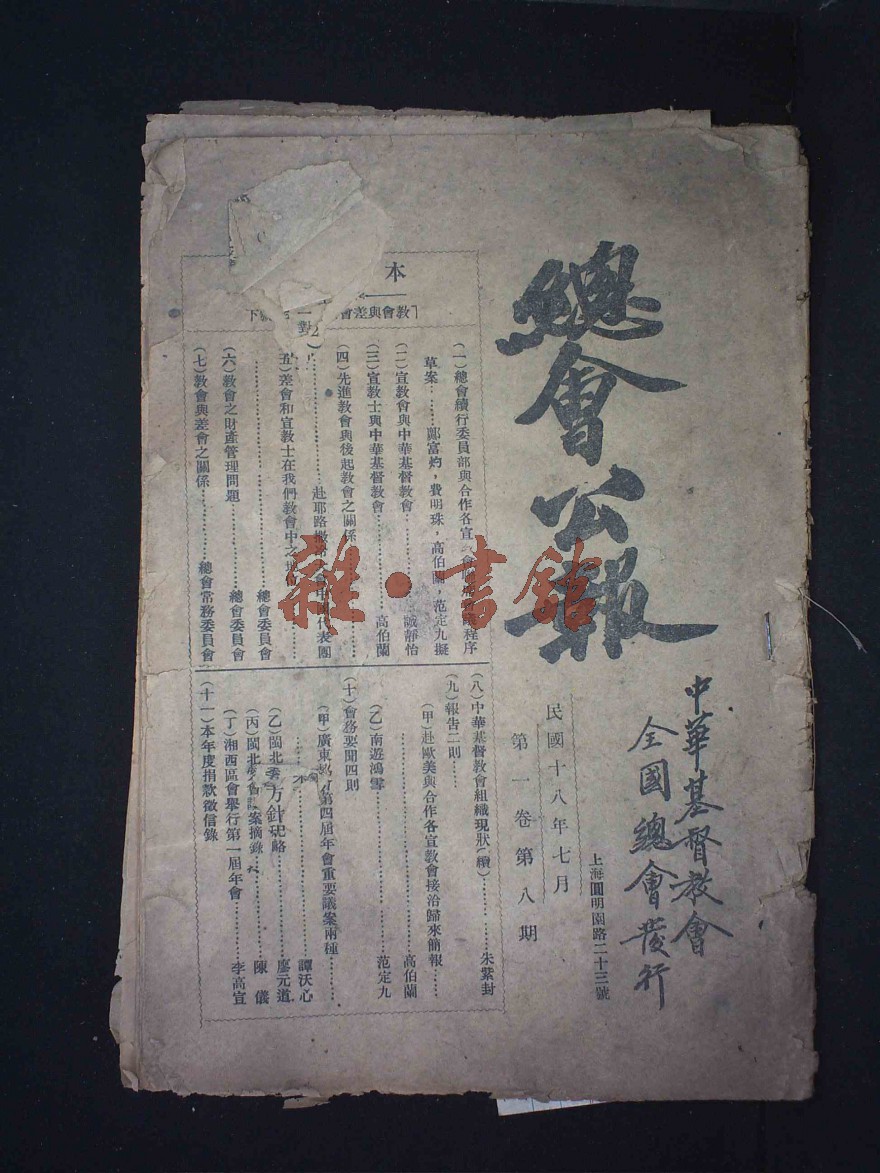 總會公報
中華基督教會
全國總會發行
上海圓明園路二十三號
民國十八年七月
第一卷第八期
本
教會與差會
下
(一)總會續行委員部與合作各宣 會 程序
草案……鄺富灼,費明珠,高伯蘭,范定九擬
(二)宣教會與中華基督教會…………誠靜怡
(三)宣教士與中華基督教會…………高伯蘭
(四)先進教會與後起教會之關係…………
…………赴耶路撒 代表團
五)差會和宣教士在我們教會中之地
…………總會委員會
(六)教會之財產管理問題…………總會委員會
(七)教會與差會之關係…………總會常務委員會
(八)中華基督教會組織現狀(續)…………朱紫封
(九)報告二則……
(甲)赴歐美與合作各宣教會接洽歸來簡報……
…………高伯蘭
(乙)南遊鴻雪…………范定九
(十)會務要聞四則
(甲)廣東 第四屆年會重要議案兩種……
…………譚沃心
(乙)閩北 方針 略…………廖元道
(丙)閩北 會 案摘錄…………陳儀
(丁)湘西區會舉行第一屆年會…………李高宣
(十一)本年度捐款徵信錄
雜·書館